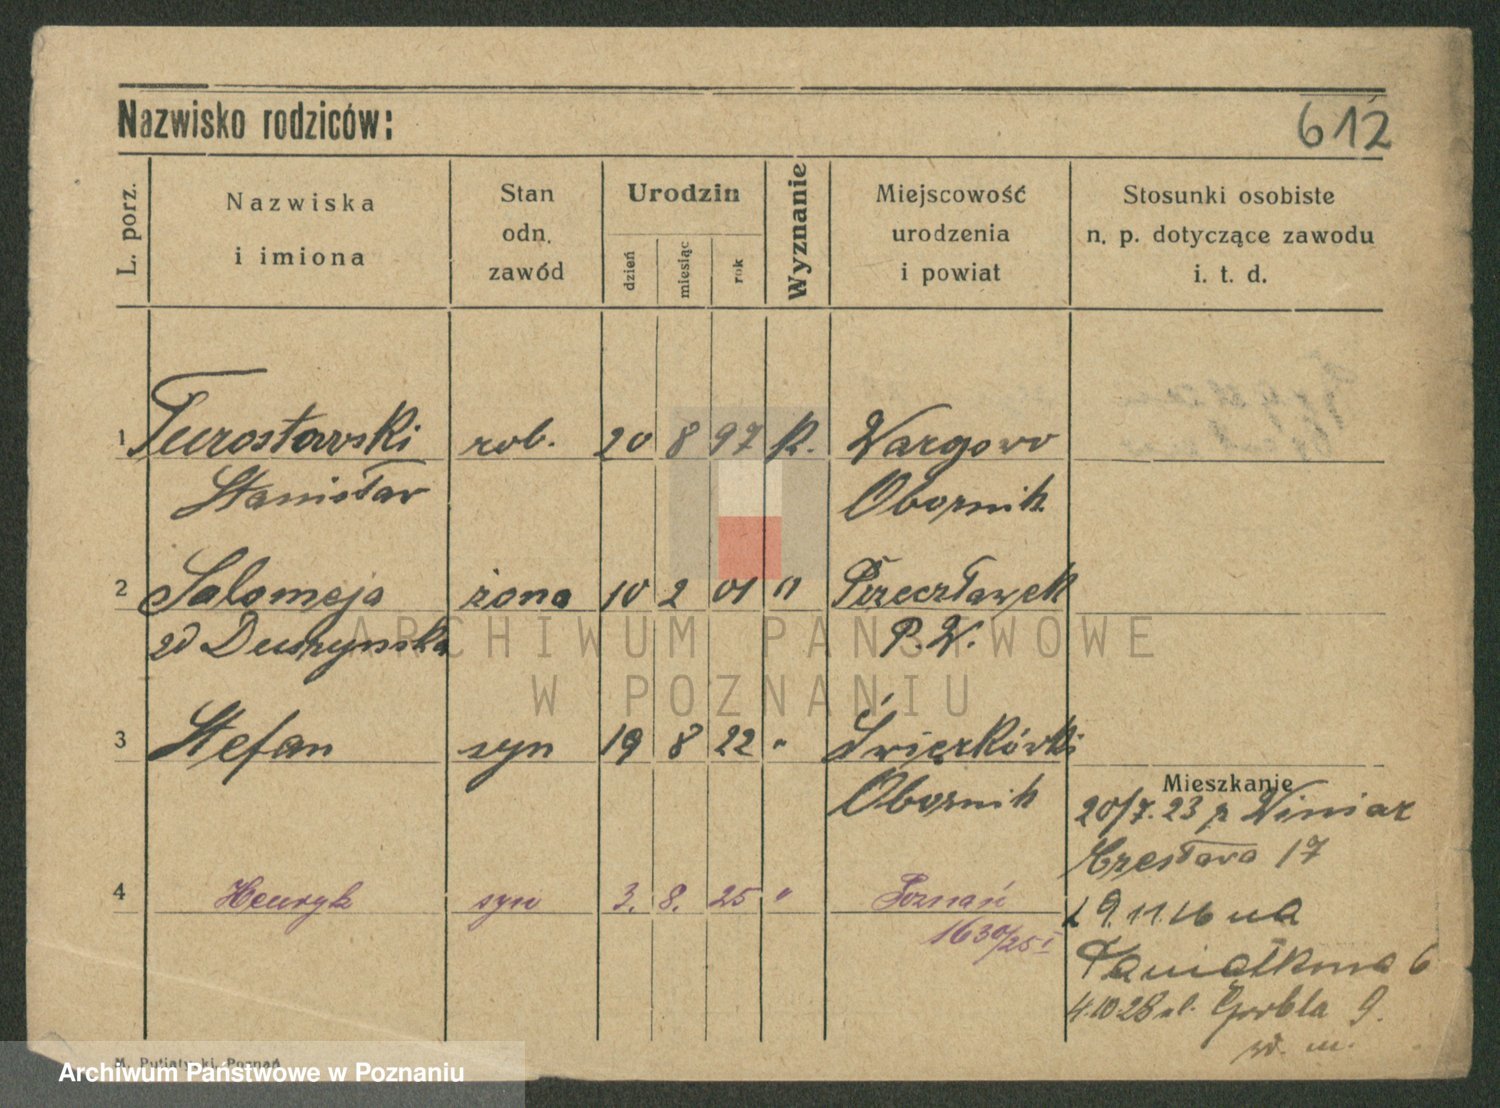 Nazwisko rodziców:
612
L. porz.
Nazwiska
i imiona
Stan
odn.
zawód
Urodzin
dzień
miesiąc
rok
Wyznanie
Miejscowość
urodzenia
i powiat
Stosunki osobiste
n. p. dotyczące zawodu
i. t. d.
1 Turostowski rob. 20 8 97 K. Wargowo
Stanisław Obornik
2 Salomeja żona 10 2 01 " Przecławek
zd Duszyńska P. W.
3 Stefan syn 19 8 22 " Święzkówki
Obornik
Mieszkanie
20/7. 23 z Winiar
17
4 Henryk syn 3. 8. 25 " Poznań
1630/25 I
9. 11. 26 na
6
4.10 28 ul. Grobla 9.
M. Putiatycki, Poznań
ARCHIWUM PAŃSTWOWE
W POZNANIU
Archiwum Państwowe w Poznaniu